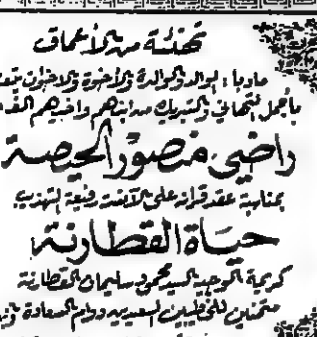 تهنئة من الأعماق
مادبا : الوالد والوالدة والأخوة والاخوات
بأجمل التهاني والتبريك من ابنهم واخيهم
راضي منصور الحيصة
بمناسبة عقد قرانه على الآنسة رفيعة التهذيب
حياة القطارنة
كريمة الوجيه السيد محمود سليمان القطارنة
متمنين للخطيبين السعيدين دوام السعادة